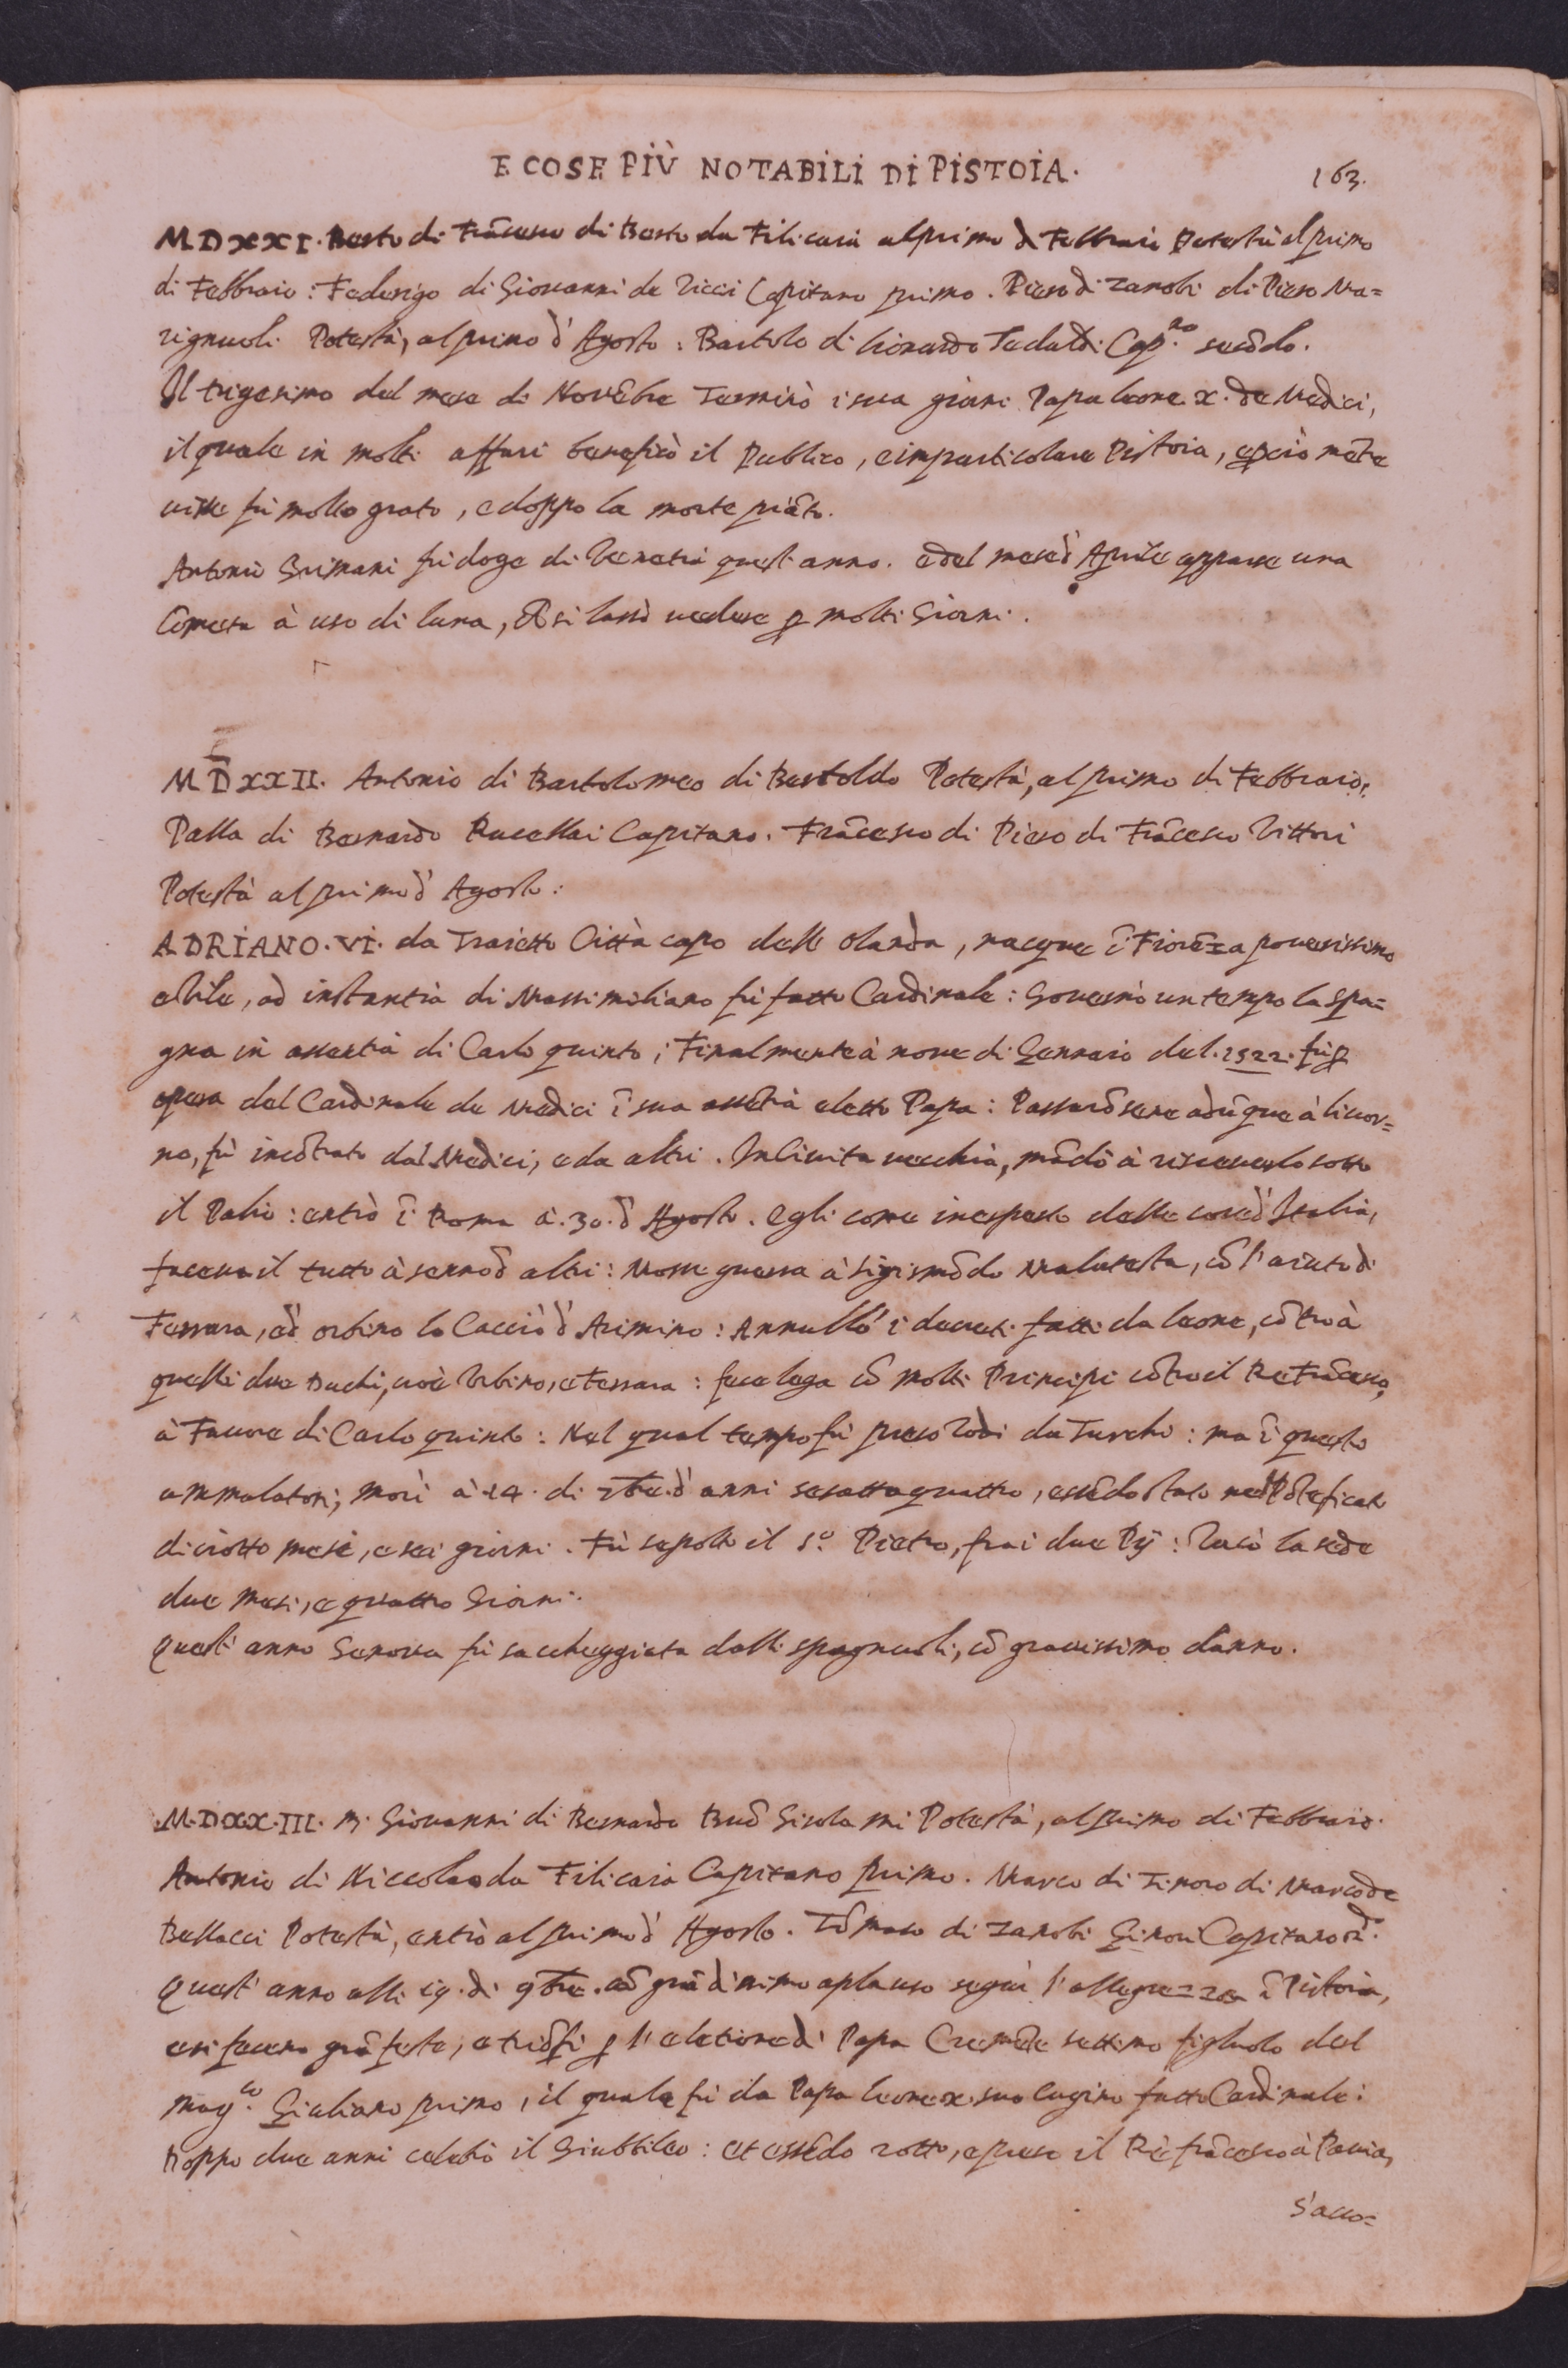 E COSE PIÙ NOTABILI DI PISTOIA.
163.
MDXXI. Berto di Frãcesco di Berto da Filicaia al primo di Febbraio Potestà al primo
di Febbraio: Federigo di Giovanni de Ricci Capitano primo. Piero di Zanobi di Piero Ma=
rignuoli Potestà, al primo d'Agosto: Bartolo di Lionardo Tedaldi Cap.no secõdo.
Il trigesimo del mese di Novẽbre Terminò i sua giorni Papa Leone. X. de Medici,
il quale in molti affari beneficò il Publico, e imparticolare Pistoia, e però mẽtre
visse fù molto grato, e doppo la morte piãto.
Antonio Grimani fù doge di Venetia quest'anno. e del mese d'Aprile apparse una
Cometa à uso di luna, e si lassò vedere p molti Giorni.
MDXXII. Antonio di Bartolomeo di Bartoldo Potestà, al primo di Febbraio:
Palla di Bernardo Rucellai Capitano. Frãcesco di Piero di Frãcesco Vittori
Potestà al primo d'Agosto:
ADRIANO. VI. da Traietto Città capo dell'Olanda, nacque ĩ Fiorẽza poverissimo
e Vile, ad instantia di Massimiliano fù fatto Cardinale: Governò un tempo la Spa=
gna in assentia di Carlo quinto; Finalmente à nove di Gennaio del. 1522. fù p
opera del Cardinale de Medici ĩ sua assẽtia eletto Papa: Passatosene adũque à livor=
no, fù incõtrato dal Medici, e da altri. In Civita vecchia, mãdò à riceverlo sotto
il Palio: entrò ĩ Roma à. 30. d'Agosto. Egli come inesperto delle cose d'Italia,
faceva il tutto à senno d'altri: Mosse guerra à Sigismõdo Malatesta, cõ l'aiuto di
Ferrara, e d'Orbino lo Cacciò d'Arimino: Annullò i decreti fatti da Leone, cõtro à
quelli due Duchi, cioè Urbino, e Ferrara: fece lega cõ molti Principi cõtro il Re Frãcesco,
à Favore di Carlo quinto: Nel qual tempo fù preso Rodi da Turchi: ma ĩ questo
ammalatosi, morì à 14. di 7bre. d'anni sesattaquattro, essẽdo stato nel Põteficato
diciotto mesi, e sei giorni. Fù sepolto il S.o Pietro, fra i due Pij: Vacò la sede
due mesi, e quattro Giorni.
Quest'anno Genova fù saccheggiata dalli spagnuoli, cõ gravissimo danno.
M.DXX.III. M. Giovanni di Bernardo Buõ Girolami Potestà, al primo di Febbraio.
Antonio di Niccolao da Filicaia Capitano primo. Marco di Tinoro di Marco de
Bellacci Potestà, entrò al primo d'Agosto. Tõmaso di Zanobi Ginori Capitano
Quest'anno alli 19. di 9bre. cõ grãdissimo aplauso seguì l'allegrezza ĩ Pistoia,
e si fecero grã feste, e triõfi p l'eletione di Papa Clemẽte settimo figluolo del
mag.co Giuliano primo, il quale fù da Papa Leone X. suo Cugino fatto Cardinale:
Doppo due anni celebrò il Giubbileo: et essẽdo rotto, e preso il Rè frãcesco à Pavia,
s'acco=